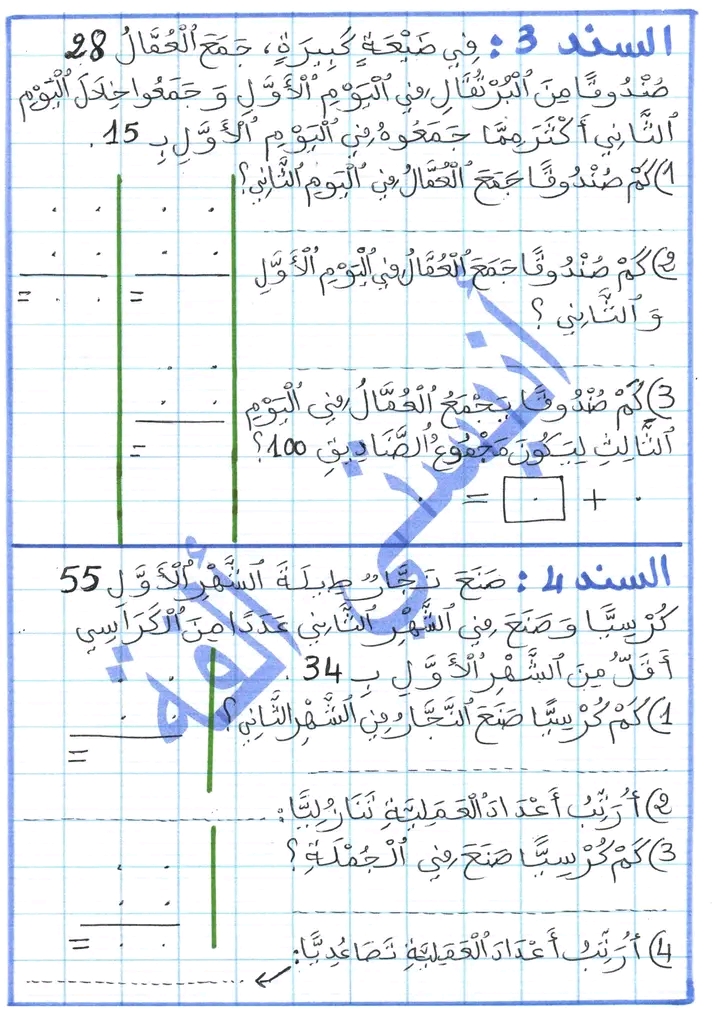 السند 3 : فِي ضَيْعَةٍ كَبِيرَةٍ، جَمَعَ ٱلْعُمَّالُ 28
صُنْدُوقًا مِنَ ٱلْبُرْتُقَالِ فِي ٱلْيَوْمِ ٱلْأَوَّلِ وَ جَمَعُوا خِلَالَ ٱلْيَوْمِ
ٱلثَّانِي أَكْثَرَ مِمَّا جَمَعُوهُ فِي ٱلْيَوْمِ ٱلْأَوَّلِ بِ 15 .
1) كَمْ صُنْدُوقًا جَمَعَ ٱلْعُمَّالُ فِي ٱلْيَوْمِ ٱلثَّانِي؟
2) كَمْ صُنْدُوقًا جَمَعَ ٱلْعُمَّالُ فِي ٱلْيَوْمِ ٱلْأَوَّلِ
وَ ٱلثَّانِي ؟
= =
3) كَمْ صُنْدُوقًا يَجْمَعُ ٱلْعُمَّالُ فِي ٱلْيَوْمِ
ٱلثَّالِثِ لِيَكُونَ مَجْمُوعُ ٱلصَّنَادِيقِ 100 ؟
=
. + . = .
السند 4 : صَنَعَ نَجَّارٌ طِيلَةَ ٱلشَّهْرِ ٱلْأَوَّلِ 55
كُرْسِيًّا وَ صَنَعَ فِي ٱلشَّهْرِ ٱلثَّانِي عَدَدًا مِنَ ٱلْكَرَاسِي
أَقَلَّ مِنَ ٱلشَّهْرِ ٱلْأَوَّلِ بِ 34 .
1) كَمْ كُرْسِيًّا صَنَعَ ٱلنَّجَّارُ فِي ٱلشَّهْرِ ٱلثَّانِي؟
=
2) أُرَتِّبُ أَعْدَادَ ٱلْعَمَلِيَّةِ تَنَازُلِيًّا:
3) كَمْ كُرْسِيًّا صَنَعَ فِي ٱلْجُمْلَةِ ؟
=
4) أُرَتِّبُ أَعْدَادَ ٱلْعَمَلِيَّةِ تَصَاعُدِيًّا:
أنيستي ألفة